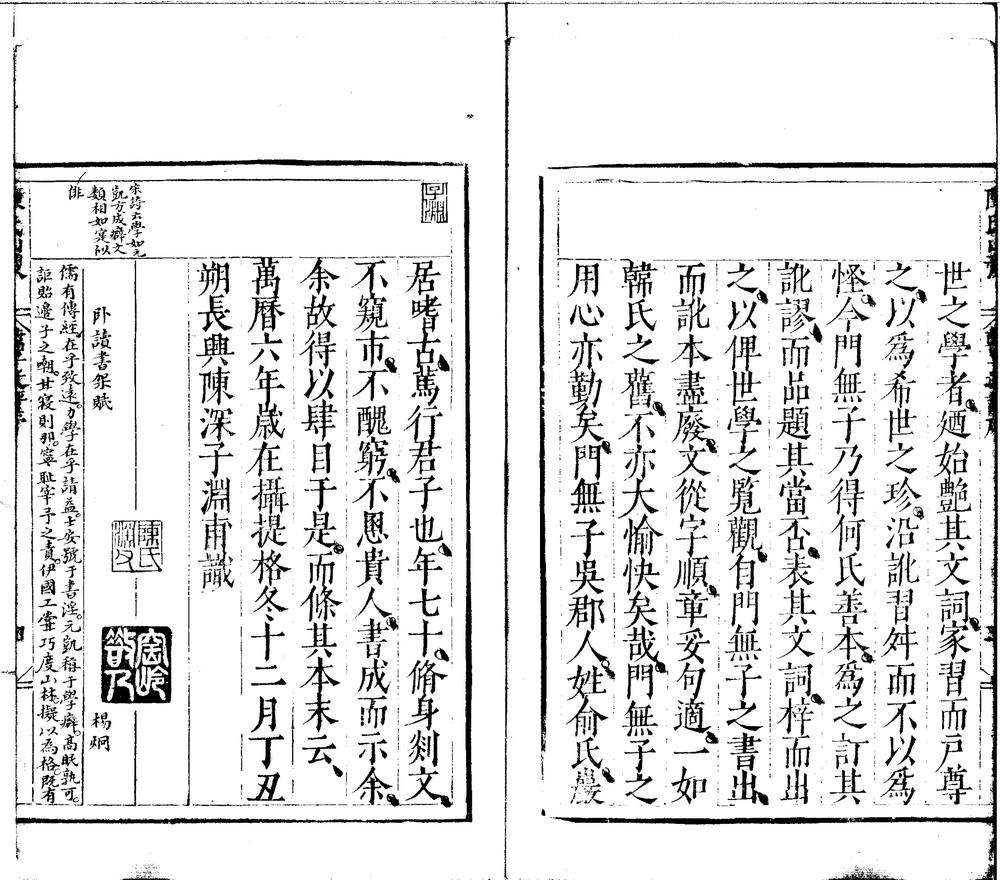 世之學者廼始艷其文詞家習而戸尊
之以爲希世之珍沿訛習舛而不以爲
怪今門無子乃得何氏善本爲之訂其
訛謬而品題其當否表其文詞梓而出
之以俾世學之覧觀自門無子之書出
而訛本盡廢文從字順章妥句適一如
韓氏之舊不亦大愉快矣哉門無子之
用心亦勤矣門無子吳郡人姓俞氏嚴
居嗜古篤行君子也年七十脩身剡文
不窺市不醜窮不慁貴人書成而示余
余故得以肆目于是而條其本末云
萬曆六年歲在攝提格冬十二月丁丑
朔長興陳深子淵甫識
子淵
陳氏
宋詩云學如元
凱方成癖文
類相如寔似
俳
卧讀書架賦
楊炯
儒有傳經在乎致遠力學在乎請益士安號于書淫元凱稱于學癖高眠孰可
詎貽邊子之嘲甘寢則那寧耻宰予之責伊國工嘗巧度山林擬以為格既有